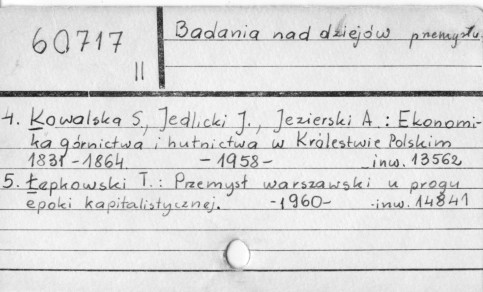 60717
II
Badania nad dziejów przemysłu.
4. Kowalska S., Jedlicki J., Jezierski A.: Ekonomi-
ka górnictwa i hutnictwa w Królestwie Polskim
1831-1864 -1958- inw. 13562
5. Łepkowski T.: Przemysł warszawski u progu
epoki kapitalistycznej. -1960- inw. 14841